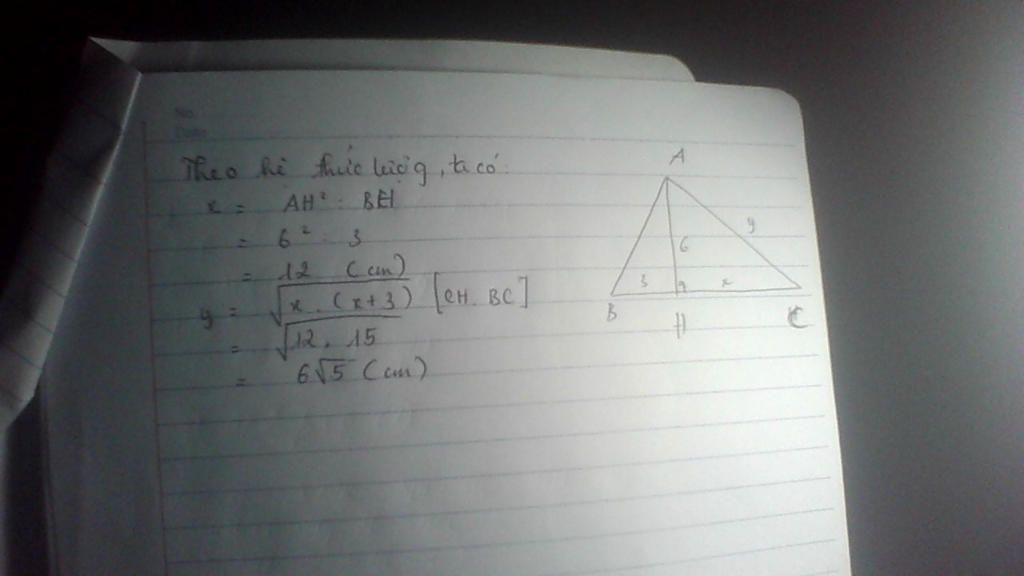 No.
Date
Theo hệ thức lượng, ta có:
x = AH² : BH
= 6² : 3
= 12 (cm)
y = √x . (x+3) [CH. BC]
= √12 . 15
= 6√5 (cm)
A
y
6
3
x
B
H
C